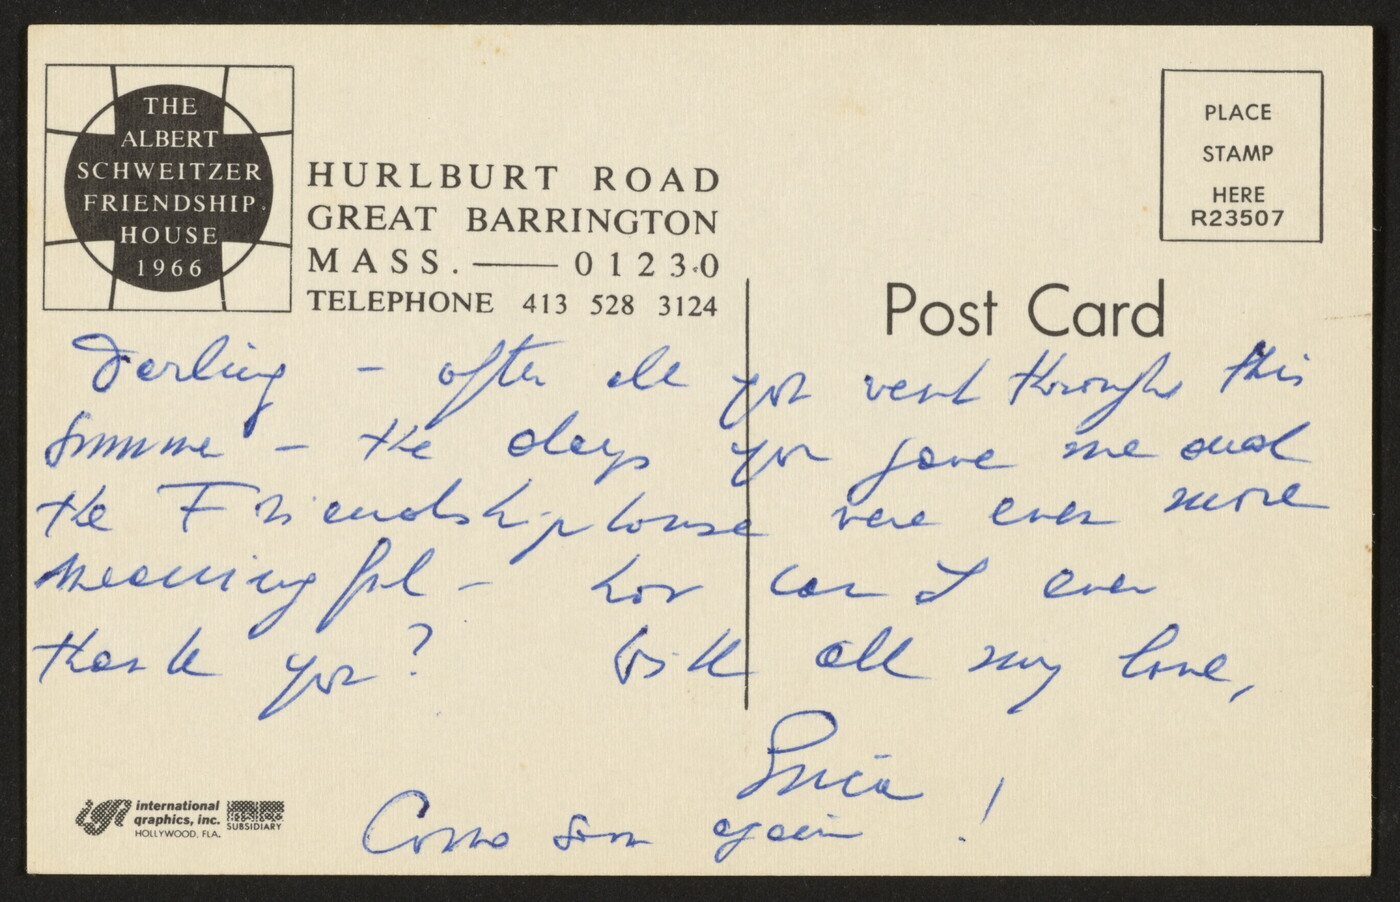 THE
ALBERT
SCHWEITZER
FRIENDSHIP
HOUSE
1966
HURLBURT ROAD
GREAT BARRINGTON
MASS. — 01230
TELEPHONE 413 528 3124
PLACE
STAMP
HERE
R23507
Post Card
Darling - after all you went through this
summer - the days you gave me and
the Friendship house were even more
meaningful - how can I ever
thank you? With all my love,
Erica
Come soon again !
international
graphics, inc.
HOLLYWOOD, FLA.
SUBSIDIARY